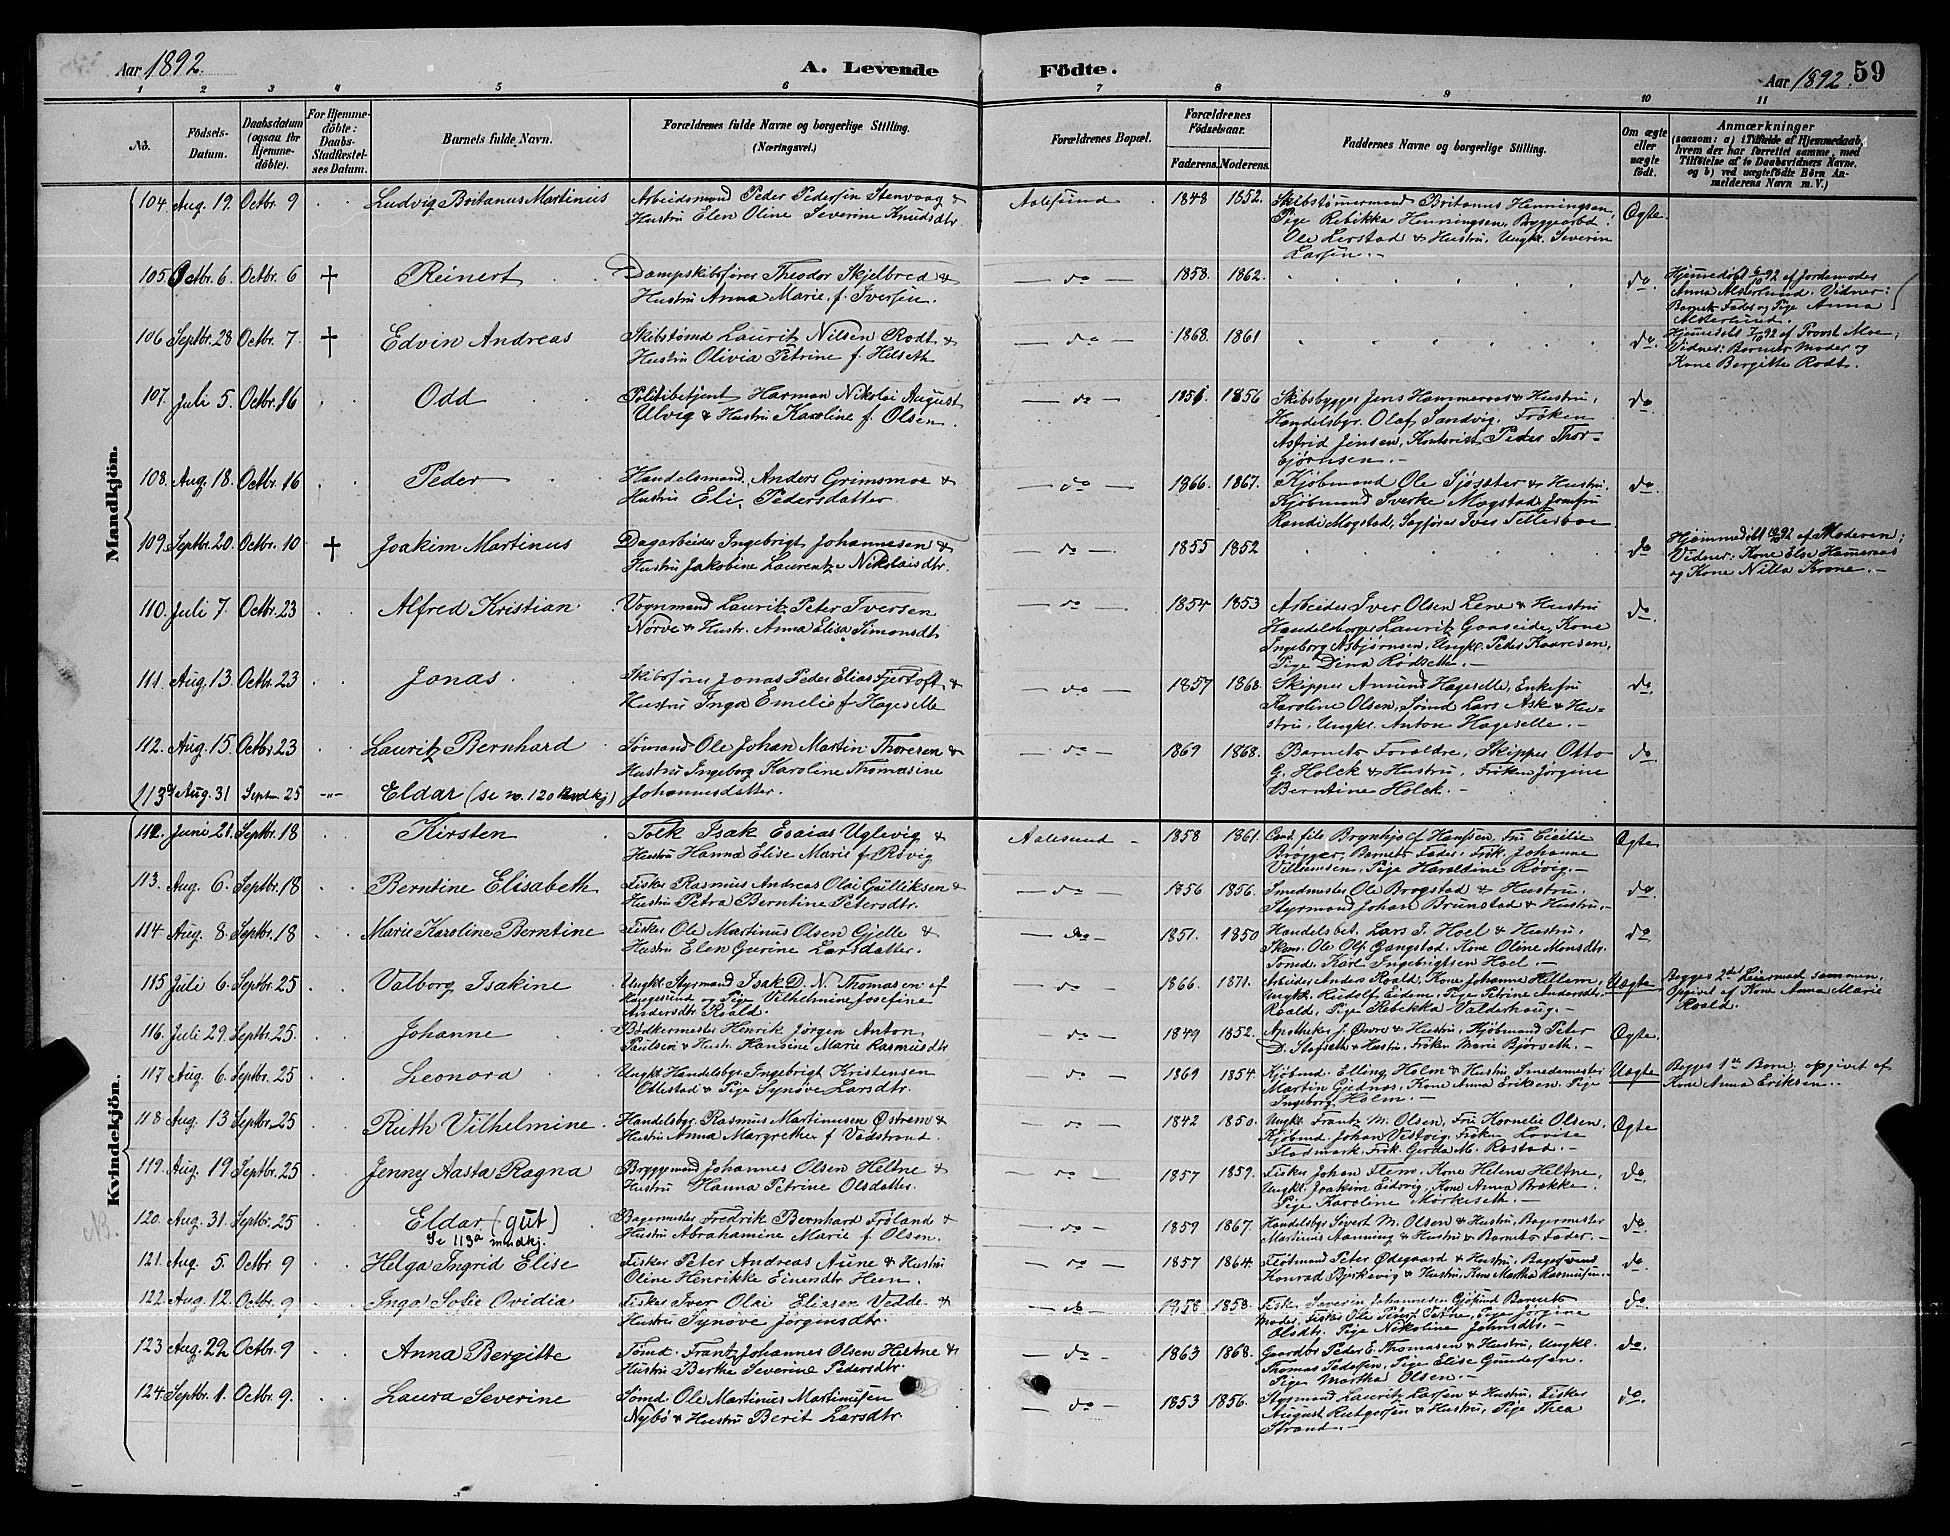 Aar 1892.
A. Levende Födte.
Aar 1892. 59
1 2 3 4 5 6 7 8 9 10 11
No.
Födsels-Datum.
Daabsdatum (ogsaa for Hjemmedöbte).
For Hjemmedöbte: Daabs-Stadfæstelses Datum.
Barnets fulde Navn.
Forældrenes fulde Navne og borgerlige Stilling.
(Næringsvei.)
Forældrenes Bopæl.
Forældrenes Födselsaar.
Faderens. Moderens.
Faddernes Navne og borgerlige Stilling.
Om ægte eller uægte födt.
Anmærkninger
(saasom: a) i Tilfælde af Hjemmedaab, hvem der har forrettet samme, med Tilföielse af to Daabsvidners Navne. og b) ved uægtefödte Börn Anmelderens Navn m. V.)
Mandkjön.
104. Aug. 19. Octbr. 9 Ludvig Britanus Martinus Arbeidsmand Peder Pedersen Stenvaag & Aalesund 1848 1852. Skibstømermand Britanus Henningsen, Ægte
Hustru Elen Oline Severine Knudsdtr. Pige Rebikka Henningsen, Bryggearbd.
Ole Lerstad & Hustru, Ungkl. Severin
Larsen.
105. Octbr. 6. Octbr. 6 † Reinert Dampskibsfører Theodor Skjelbred & do 1858. 1862. do. Hjemmedøbt 6/10 92 af Jordemoder
Hustru Anna Marie f. Iversen. Anna Alsterlund. Vidner:
Barnets Fader og Pige Anna
Alsterlund.
106 Septbr. 28 Octbr. 7. † Edvin Andreas Skibstømd Laurits Nilsen Rodt & do 1868. 1861 do. Hjemmedøbt 7/10 92 af Provst Moe,
Hustru Olivia Petrine f. Helseth Vidner: Barnets Moder og
Kone Bergitte Rodt.
107. Juli 5. Octbr. 16 Odd Politibetjent Harman Nikolai August do 1851 1856 Skibsbygger Jens Hammeraas & Hustru, do
Ulvig & Hustru Karoline f. Olsen. Handelsbgr. Olaf Sandvig, Frøken
Astrid Jensen, Kontorist Peder Thorbjørnsen.
108. Aug. 18. Octbr. 16 Peder Handelsmand Anders Grimsmoe & do 1866. 1867. Kjøbmand Ole Sjøseter & Hustru. do.
Hustru Eli Pedersdatter Kjøbmand Sverke Mogstad, Jomfru
Randi Mogstad, Sagfører Iver Tellesboe
109. Septbr. 20. Octbr. 10 † Joakim Martinus Dagarbeider Ingebrigt Johannesen & do 1855 1852 do Hjemmedøbt 10/10 92 af Moderen;
Hustru Jakobine Laurentze Nikolaisdtr. Vidner: Kone Else Hameraas
og Kone Nilla Krone.
110. Juli 7. Octbr. 23 Alfred Kristian Vognmand Laurits Peter Iversen do 1854 1853 Arbeider Iver Olsen Lene & Hustru do.
Nørve & Hustr. Anna Elisa Simonsdtr Handelsborger Lauritz Gaaseide, Kone
Ingeborg Asbjørnsen, Ungkl. Peder Kaaresen,
Pige Dina Rødseth.
111. Aug. 13. Octbr. 23 Jonas Skibsfører Jonas Peder Elias Fjertoft & do 1857 1868. Skipper Amund Hageselle, Enkefru do
Hustru Inga Emelie f. Hageselle Karoline Olsen, Sømd Lars Ask & Hustru, Ungkl. Anton Hageselle.
112. Aug. 15. Octbr. 23 Lauritz Bernhard Sømand Ole Johan Martin Thoresen & do 1869 1868. Barnets Forældre, Skipper Otto do
Hustru Ingeborg Karoline Thomasine G. Holck & Hustru, Frøken Jørgine
Johannesdatter. Berntine Holck.
113a Aug. 31 Septbr. 25 Eldar (se no. 120 kvdkj)
Kvindekjön.
112. Juni 21. Septbr. 18 Kirsten Tolk Isak Esaias Uglevig & Aalesund 1858 1861. Cand. file Brynhjolf Hanssen, Fru Cicilie Ægte
Hustru Hanna Elise Marie f. Røvig Brøgger, Barnets Fader, Frk. Johanne
Villumsen, Pige Haraldine Røvig.
113. Aug. 6. Septbr. 18 Berntine Elisabeth Fisker Rasmus Andreas Olai Gulliksen & do 1856 1856. Smedmester Ole Brogstad & Hustru. do.
Hustru Petra Berntine Petersdtr. Styrmand Johan Brunstad & Hustru.
114 Aug. 8. Septbr. 18 Marie Karoline Berntine Fisker Ole Martinus Olsen Gjelle & do 1851. 1850 Handelsbet. Lars T. Hoel & Hustru, do
Hustru Elen Gurine Larsdatter. Skom. Ole Olf. Gangstad, Kone Oline Monsdtr.
Tomd. Karl Ingebrigtsen Hoel.
115 Juli 6. Septbr. 25 Valborg Isakine Ungkl Styrmand Isak D. N. Thomasen af do 1866. 1871. Arbeider Anders Roald, Kone Johanne Hillern, Uægte Begges 2det Leiermaal sammen,
Haugesund og Pige Vilhelmine Josefine Ungkl. Rudolf Eidem, Pige Petrine Andersdtr. Opgivet af Kone Anna Marie
Andersdtr Roald. Roald, Pige Rebekka Valderhoug. Roald
116. Juli 29. Septbr. 25. Johanne Bødkermester Henrik Jørgen Anton do 1849 1852. Apotheker J. Øvre & Hustru, Kjøbmand Peter Ægte.
Paulsen & Hustr. Hansine Marie Rasmusdtr D. Stafseth & Hustru, Frøken Marie Bjørseth.
117 Aug. 6. Septbr. 25 Leonora Ungkl Handelsbgr Ingebrigt Kristensen do 1869 1854. Kjøbmd. Elling Holm & Hustru, Smedemester Uægte Begges 1ste Barn, opgivet af
Ottestad & Pige Synøve Larsdtr. Martin Gjednes, Kone Anna Eriksen, Pige Kone Anna Eriksen.
Ingeborg Holm.
118 Aug. 13 Septbr. 25 Ruth Vilhelmine Handelsbgr. Rasmus Martinusen Østrem & do 1842 1850. Ungkl Frantz M. Olsen, Fru Kornelie Olsen, Ægte
Hustru Anna Margrethe f. Vadstrand. Kjøbmd. Johan Vestvig, Frøken Lovise
Flodmark, Frk. Gerda M. Rostad.
119. Aug. 19 Septbr. 25 Jenny Aasta Ragna Bryggemand Johannes Olsen Heltne & do 1857 1859. Fisker Johan Flem, Kone Helena Heltne, do.
Hustru Hanna Petrine Olsdatter. Ungkl. Joakim Eidsvig, Kone Anna Brække,
Pige Karoline Mørkeseth.
NB. 120. Aug. 31 Septbr. 25 Eldar (gut) Bagermester Fredrik Bernhard Frøland & do 1859 1867. Handelsbgr Sivert M. Olsen & Hustru, Bagermester do.
Se 113a mandkj. Hustru Abrahamine Marie f. Olsen. Martinus Aanning & Hustru & Barnets Fader.
121. Aug. 5. Octbr 9 Helga Ingrid Elise Fisker Peter Andreas Aune & Hustru do 1857 1864. Fløtmand Peter Ødegaard & Hustru, Bagersvend do.
Oline Henrikke Einersdtr Heen. Konrad Bjerkevig & Hustru, Kone Martha Rasmusen.
122. Aug. 12. Octbr. 9 Inga Sofie Ovidia Fisker Iver Olai Eliasen Vedde & do 1858 1858. Fisker Severin Johannesen Gjøsund, Barnets do.
Hustru Synøve Jørgensdtr. Moder, Fisker Ole Peders. Vedde, Pige Jørgine
Olsdtr. Pige Nikoline Johnsdtr.
123 Aug. 22 Octbr. 9 Anna Bergitte Tømd. Frantz Johannes Olsen Heltne & do 1863 1868. Gaardbr Peder E. Thomasen & Hustru, Ungkl. do.
Hustru Berthe Severine Pedersdtr. Thomas Pedersen, Pige Elise Gundersen,
Pige Martha Olsen.
124. Septbr. 1. Octbr. 9. Laura Severine Sømd. Ole Martinus Martinusen do 1853 1856. Styrmand Lauritz Larsen & Hustru, Fisker do.
Nybø & Hustru Berit Larsdtr. August Rutgersen & Hustru, Pige Thea
Strand.